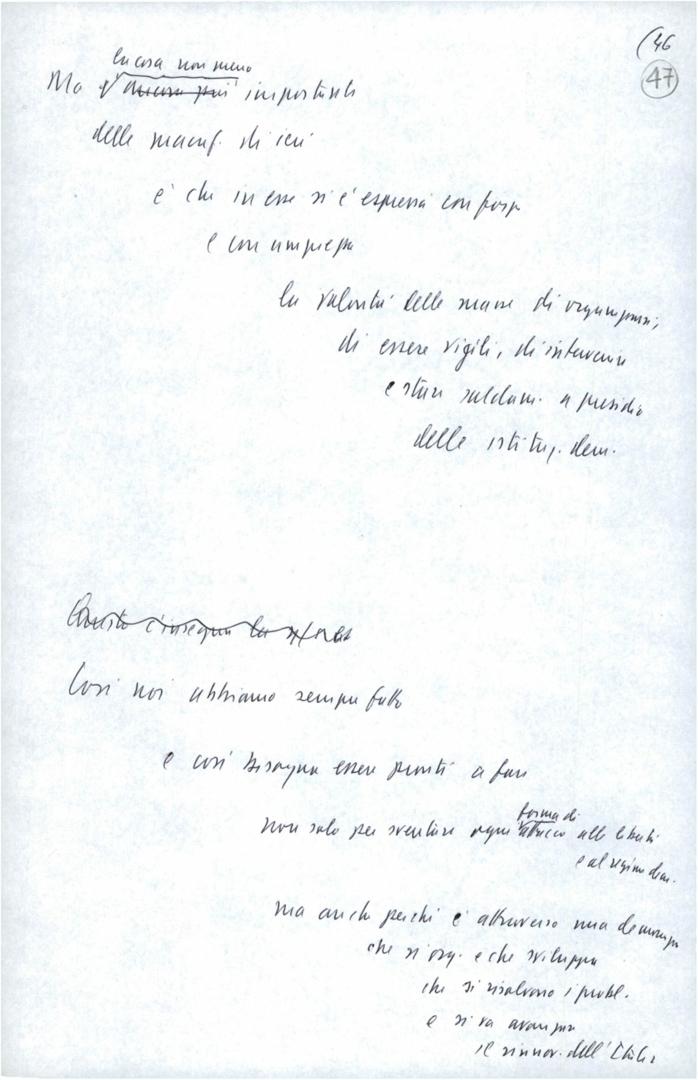 (46
47
la cosa non meno
Ma è ancora più importante
delle manif. di ieri
è che in esse si è espressa con forza
e con ampiezza
la volontà delle masse di organizzarsi,
di essere vigili, di intervenire
e stare saldam. a presidio
delle istituz. dem.
Questo c'insegna la
Così noi abbiamo sempre fatto
e così bisogna essere pronti a fare
non solo per sventare ogni forma di attacco alle libertà
e al regime dem.
ma anche perché è attraverso una democrazia
che si org. e che sviluppa
che si risolvono i probl.
e si va avanti per
il rinnov. dell'Italia